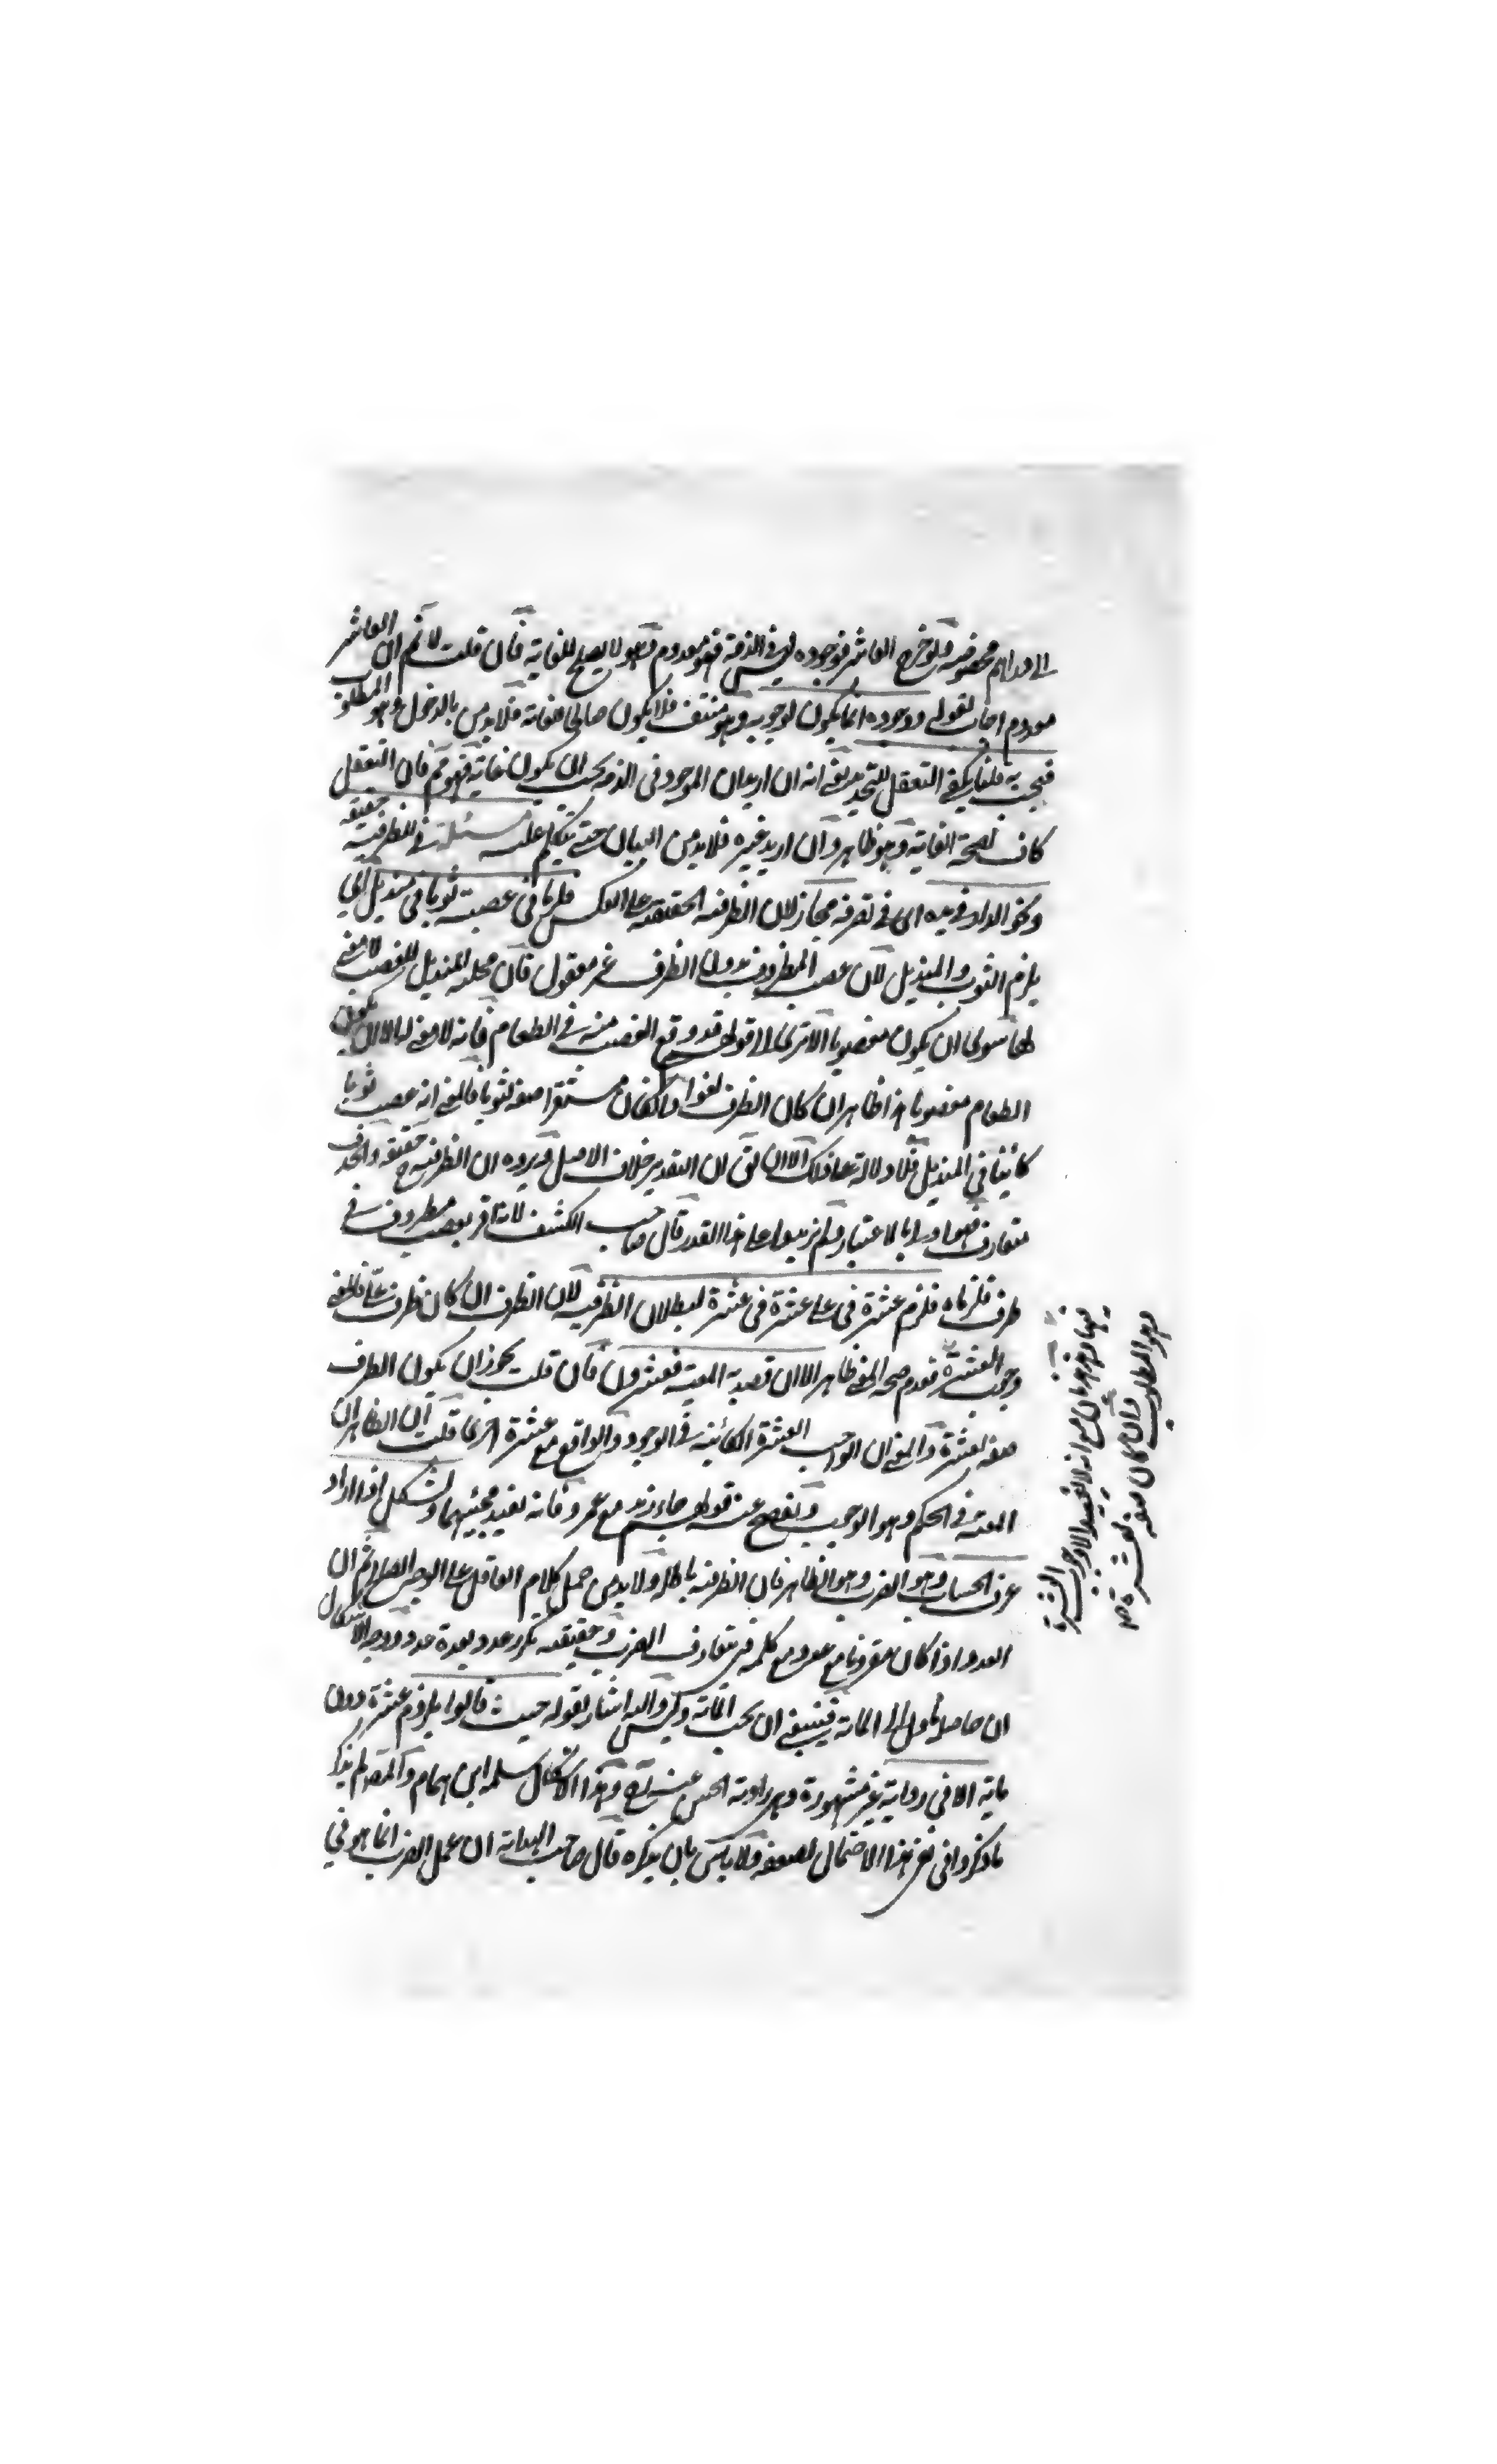 الى دراهم مخصوصة ولو خرج العاشر فوجوده ليس فى الذمة فهو معدوم وهو لا يصلح للغاية فان قلت لا نم ان العاشر
معدوم اجاب بقوله ووجوده انما يكون لوجوبه وهو منتف فلا يكون صالحا للغاية فلا بد من بالدخول وهو المطلوب
فيجب به قلنا يكفى التعقل للتحديد فيه انه ان اريد ان الموجود فى الذمة يجب ان يكون غاية فهو مم فان التعقل
كاف لصحة الغاية وهو ظاهر وان اريد غيره فلا بد من البيان حتى يتكلم عليه مسئلة فى للظرفية حقيقة
ونحو الدار فى يده اى فى تصرفه مجاز لان الظرفية الحقيقية على العكس فلزما فى غصبت ثوبا فى منديل اى
يلزم الثوب والمنديل لان غصب المظروف بدون الظرف غير معقول فان محلية المنديل للغصب لا معنى
لها سوى ان يكون مغصوبا الا ترى الى قولهم قد وقع الغصب منه فى الطعام فانه لا معنى له الا ان يكون
الطعام مغصوبا هذا ظاهر ان كان الظرف لغوا وان كان مستقرا صفة لثوبا فالمعنى انه غصب ثوبا
كائنا فى المنديل فلا دلالة على ذلك الا ان يق ان التقدير خلاف الاصل ويرده ان الظرفية ح حقيقة والحذف
متعارف فهو اولى بالاعتبار ولم نزيدوا على هذا القدر قال صاحب الكشف لانه اقر بغصب مظروف فى
ظرف فلزماه فلزم عشرة فى على عشرة فى عشرة لبطلان الظرفية لان الظرف ان كان ظرف على فالمعنى
وجوب العشرة فعدم صحة المعنى ظاهر الا ان قصد به المعية فعشرون فان قلت يجوز ان يكون الظرف
صفة لعشرة والمعنى ان الواجب العشرة الكائنة فى الوجود والواقع مع عشرة اخرى قلت ان الظاهر ان
المعية فى الحكم وهو الوجوب ويفصح عنه قولهم جاء زيد مع عمرو فانه يفيد مجيئهما ويشكل اذا اراد
عرف الحساب وهو الضرب وهو الظاهر فان الظرفية باطلة ولا بد من حمل كلام العاقل على الوجه الصالح ثم ان
العدد اذا كان مقرونا مع عدد مع كلمة فى متعارف الضرب وحقيقته تكرر عدد بعدة عدد ووجه الاشكال
ان حاصله يأول الى المائة فينبغى ان يجب المائة وليس واليه اشار بقوله حيث قالوا يلزم عشرة دون
مائة الا فى رواية غير مشهورة وهى رواية الحسن عنه وهذا الاشكال سلمه ابن همام والمصه لم يذكر
ما ذكروا فى نفى هذا الاحتمال لضعفه ولا بأس بان يذكره قال صاحب الهداية ان عمل الضرب انما هو فى
وهو المطلوب وان كان صفة لعشرة صح